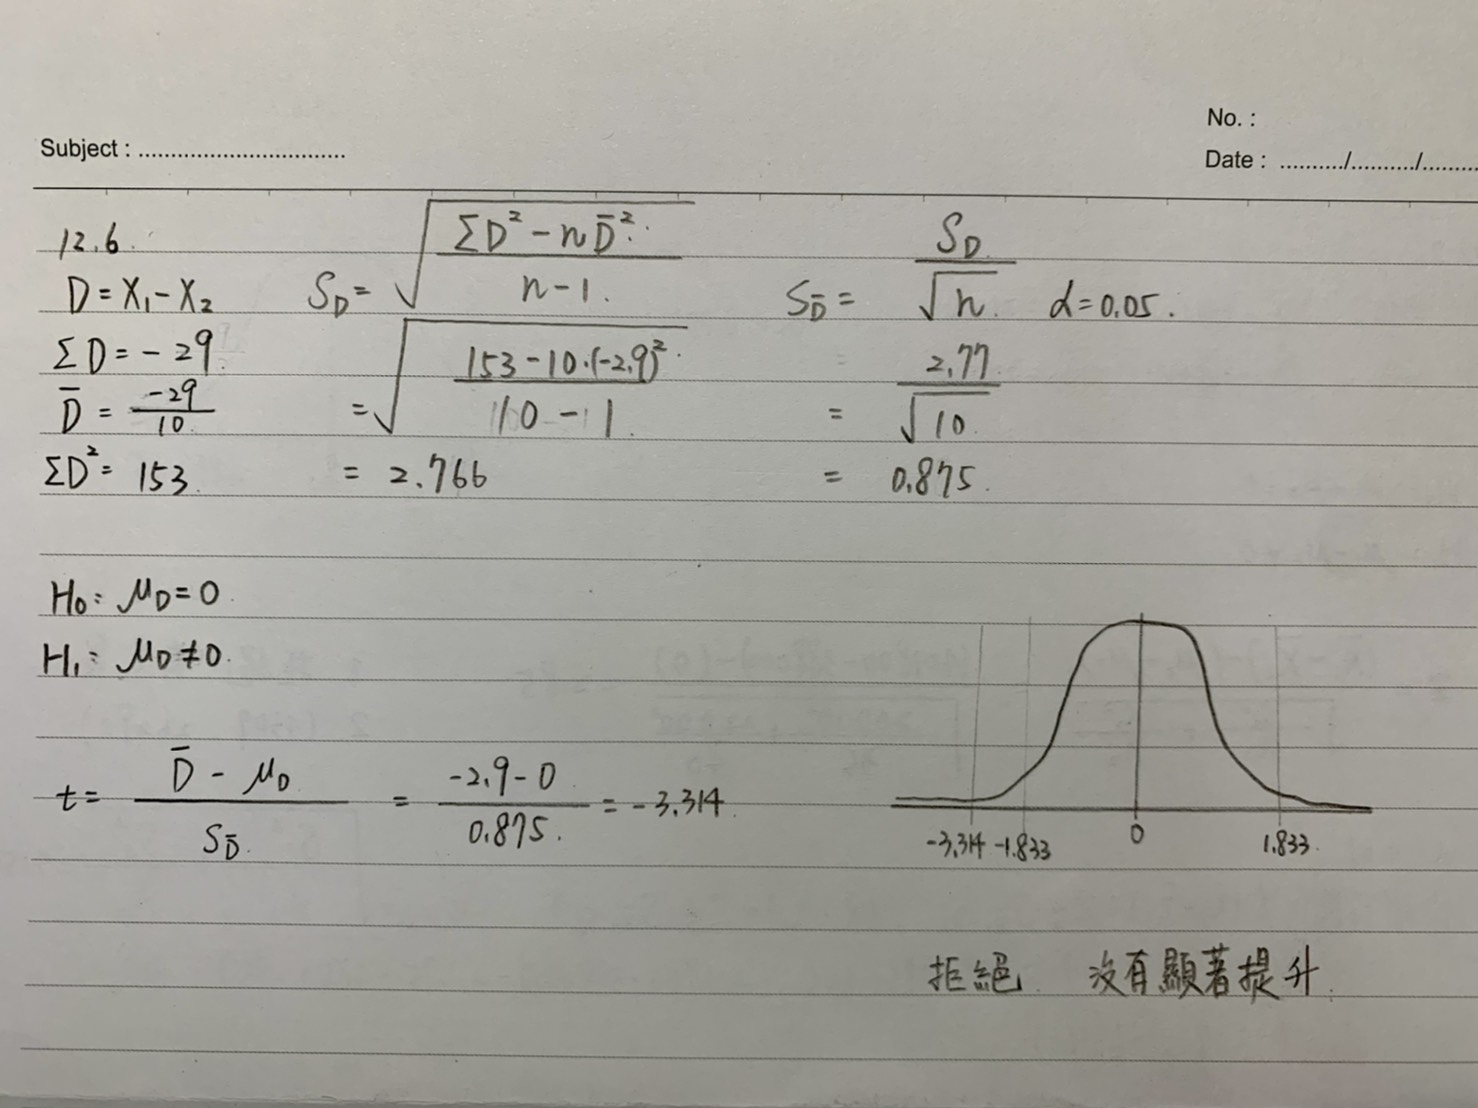 No. :
Subject : ................................
Date : ........../........../........
12.6.
D = X₁ - X₂
ΣD = -29
D̄ = -29/10
ΣD² = 153
S_D = √((ΣD² - nD̄²)/(n-1))
= √((153-10·(-2.9)²)/(10-1))
= 2.766
S_D̄ = S_D/√n α=0.05.
= 2.77/√10
= 0.875
H₀: μ_D = 0
H₁: μ_D ≠ 0
t = (D̄ - μ_D)/S_D̄ = (-2.9-0)/0.875 = -3.314
-3.314 -1.833 0 1.833
拒絕 沒有顯著提升